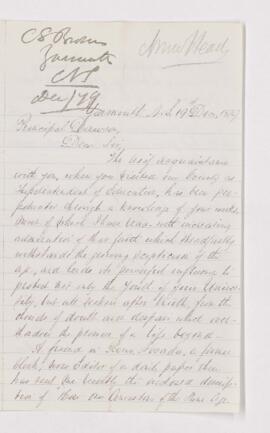 C S Brown
Yarmouth
NS
Dec/79
Arrow Heads
Yarmouth, N.S. 19th Dec, 1879
Principal Dawson,
Dear Sir,
The brief acquaintance
with you, when you visited our County as
Superintendent of Education, has been per-
petuated through a knowledge of your works
some of which I have read with increasing
admiration of that faith which steadfastly
withstands the growing scepticism of the
age, and lends its powerful influence to
protect not only the Youth of your Univer-
sity, but all seekers after Truth, from the
clouds of doubt and despair which over-
shadow the promise of a life beyond.
A friend in Nevada, a former
clerk, now Editor of a daily paper there
has sent me recently the enclosed descrip-
tion of "How our Ancestors of the Stone Age